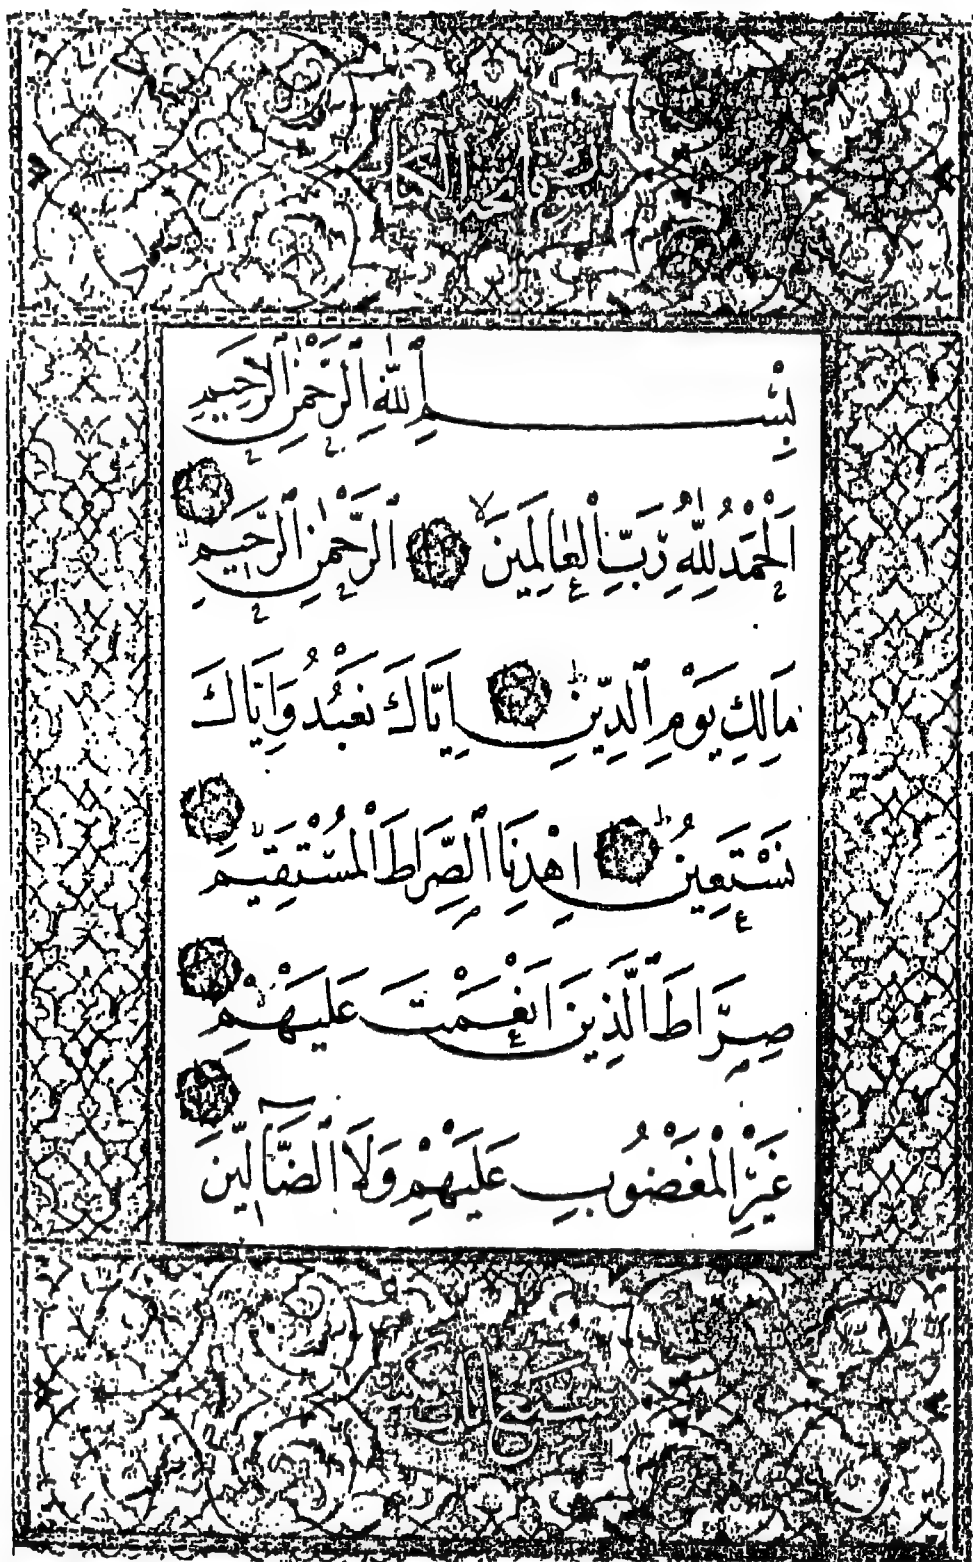 سورة فاتحة الكتاب
بِسْمِ ٱللّٰهِ ٱلرَّحْمٰنِ ٱلرَّحِيمِ
اَلْحَمْدُ لِلّٰهِ رَبِّ ٱلْعَالَمِينَ ٱلرَّحْمٰنِ ٱلرَّحِيمِ
مَالِكِ يَوْمِ ٱلدِّينِ اِيَّاكَ نَعْبُدُ وَاِيَّاكَ
نَسْتَعِينُ اِهْدِنَا ٱلصِّرَاطَ ٱلْمُسْتَقِيمَ
صِرَاطَ ٱلَّذِينَ اَنْعَمْتَ عَلَيْهِمْ
غَيْرِ ٱلْمَغْضُوبِ عَلَيْهِمْ وَلَا ٱلضَّآلِّينَ
سبع آيات مكية